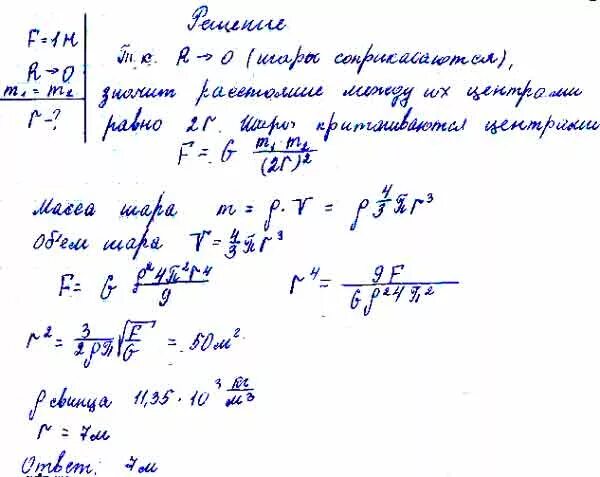 Решение
F = 1 Н
R → 0
m₁ = m₂
r – ?
Т.к. R → 0 (шары соприкасаются),
значит расстояние между их центрами
равно 2r. Шары притягиваются центрами
F = G (m₁ · m₂)/(2r)²
Масса шара m = ρ · V = ρ 4/3 π r³
Объем шара V = 4/3 π r³
F = G (ρ² 4π² r⁴)/9   r⁴ = 9F/(G ρ² 4π²)
r² = 3/(2ρπ) √(F/G) = 50 м²
ρ свинца 11,35 · 10³ кг/м³
r = 7 м
Ответ: 7 м